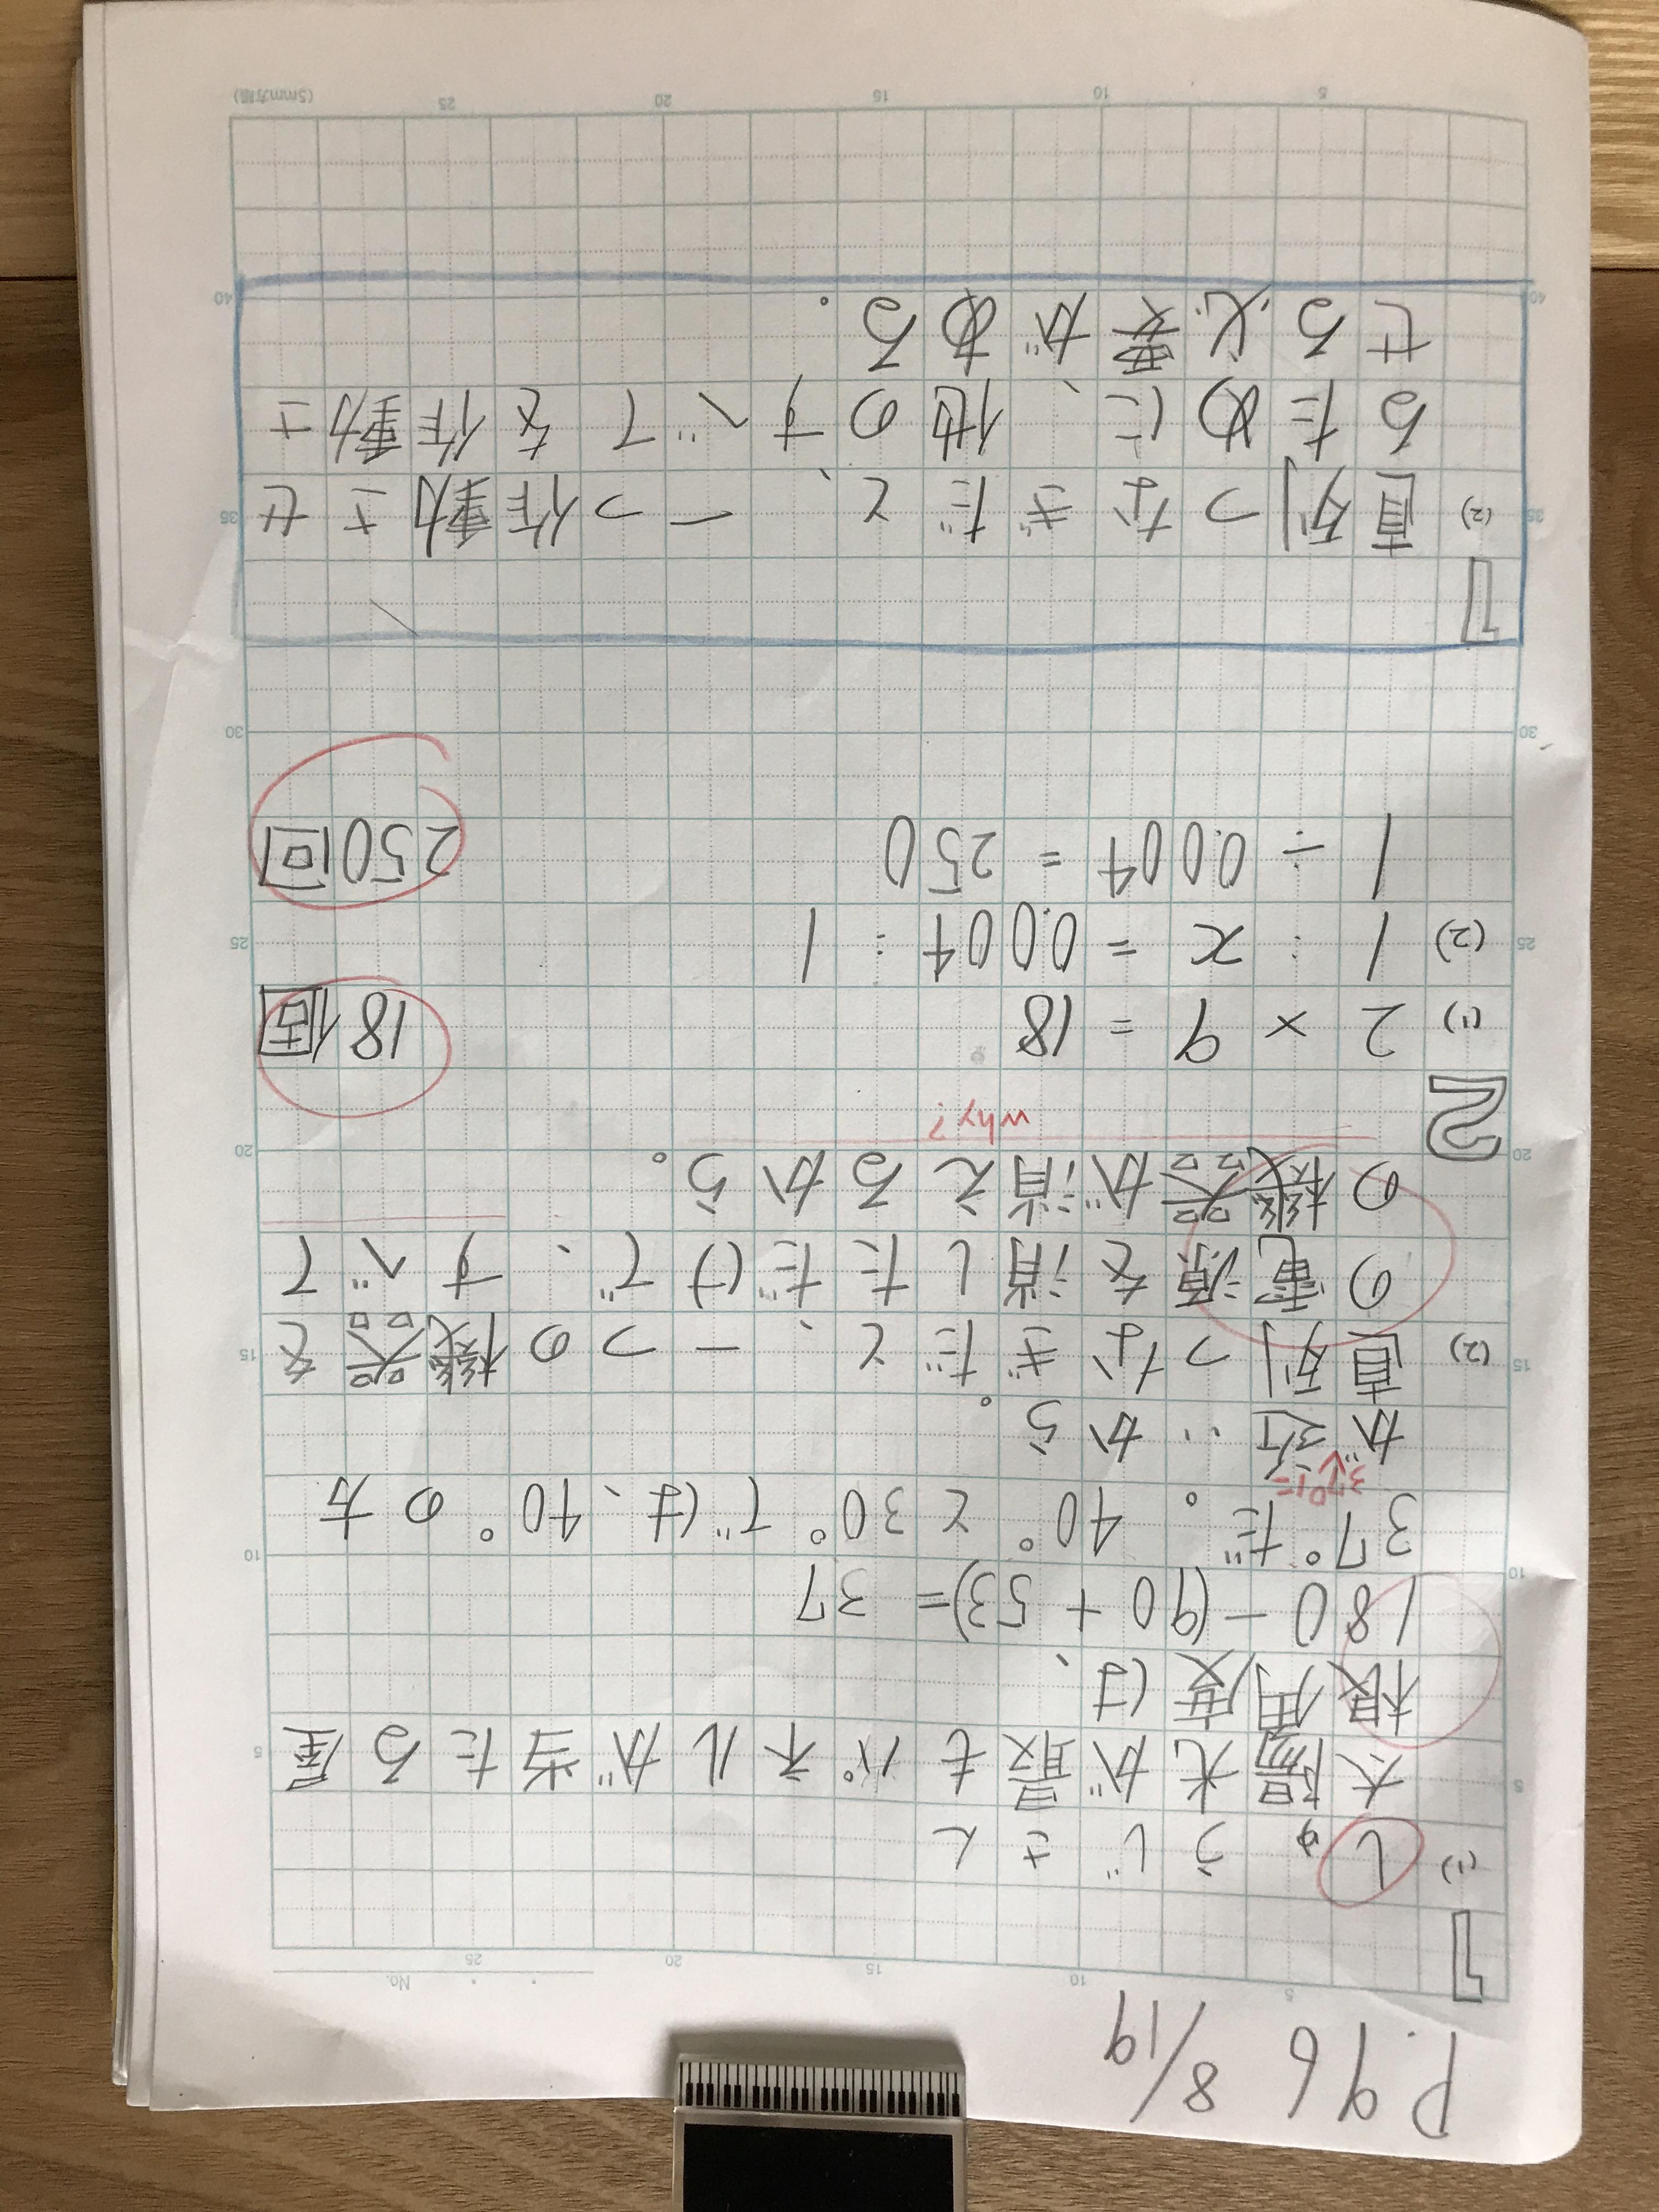 P.96 8/19
No.
5 10 15 20 25
1
(1) しゅうじさん
太陽光が最もパネルが当たる屋
根角度は、
180-(90+53)=37
37°だ。40°と30°では、40°の方
37°に
が近いから。
(2) 直列つなぎだと、一つの機器を
の電源を消しただけで、すべて
の機器が消えるから。
why?
2
(1) 2×9=18 18個
(2) 1:x=0.004:1
1÷0.004=250 250回
1
(2) 直列つなぎだと、一つ作動させ
るために、他のすべてを作動さ
せる必要がある。
5 10 15 20 25 (5mm方眼)
5 10 15 20 25 30 35 40
5 10 15 20 25 30 35 40